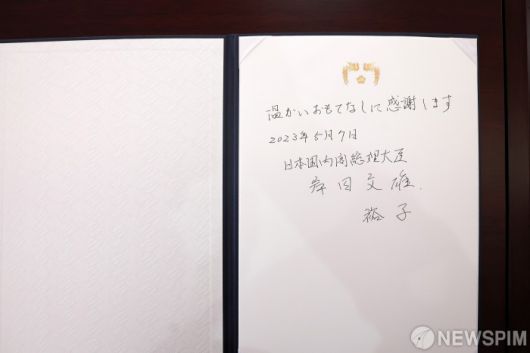 温かいおもてなしに感謝します
2023年5月7日
日本国内閣総理大臣
岸田文雄
裕子
NEWSPIM